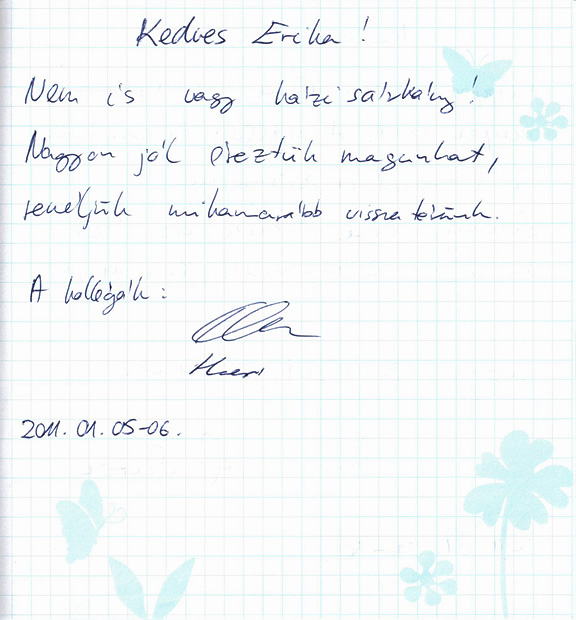 Kedves Erika!
Nem is vagy házisárkány!
Nagyon jól éreztük magunkat,
reméljük mihamarább vissza térünk.
A kollégák:
2011. 01. 05-06.